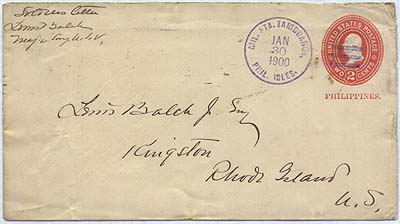 Soldiers letter
Lewis Balch
Major Surg U.S.V.
MIL. STA. ZAMBOANGA,
JAN
30
1900
PHIL. ISLES.
UNITED STATES POSTAGE
TWO 2 CENTS
PHILIPPINES.
Lewis Balch Jr Esq
Kingston
Rhode Island
U.S.